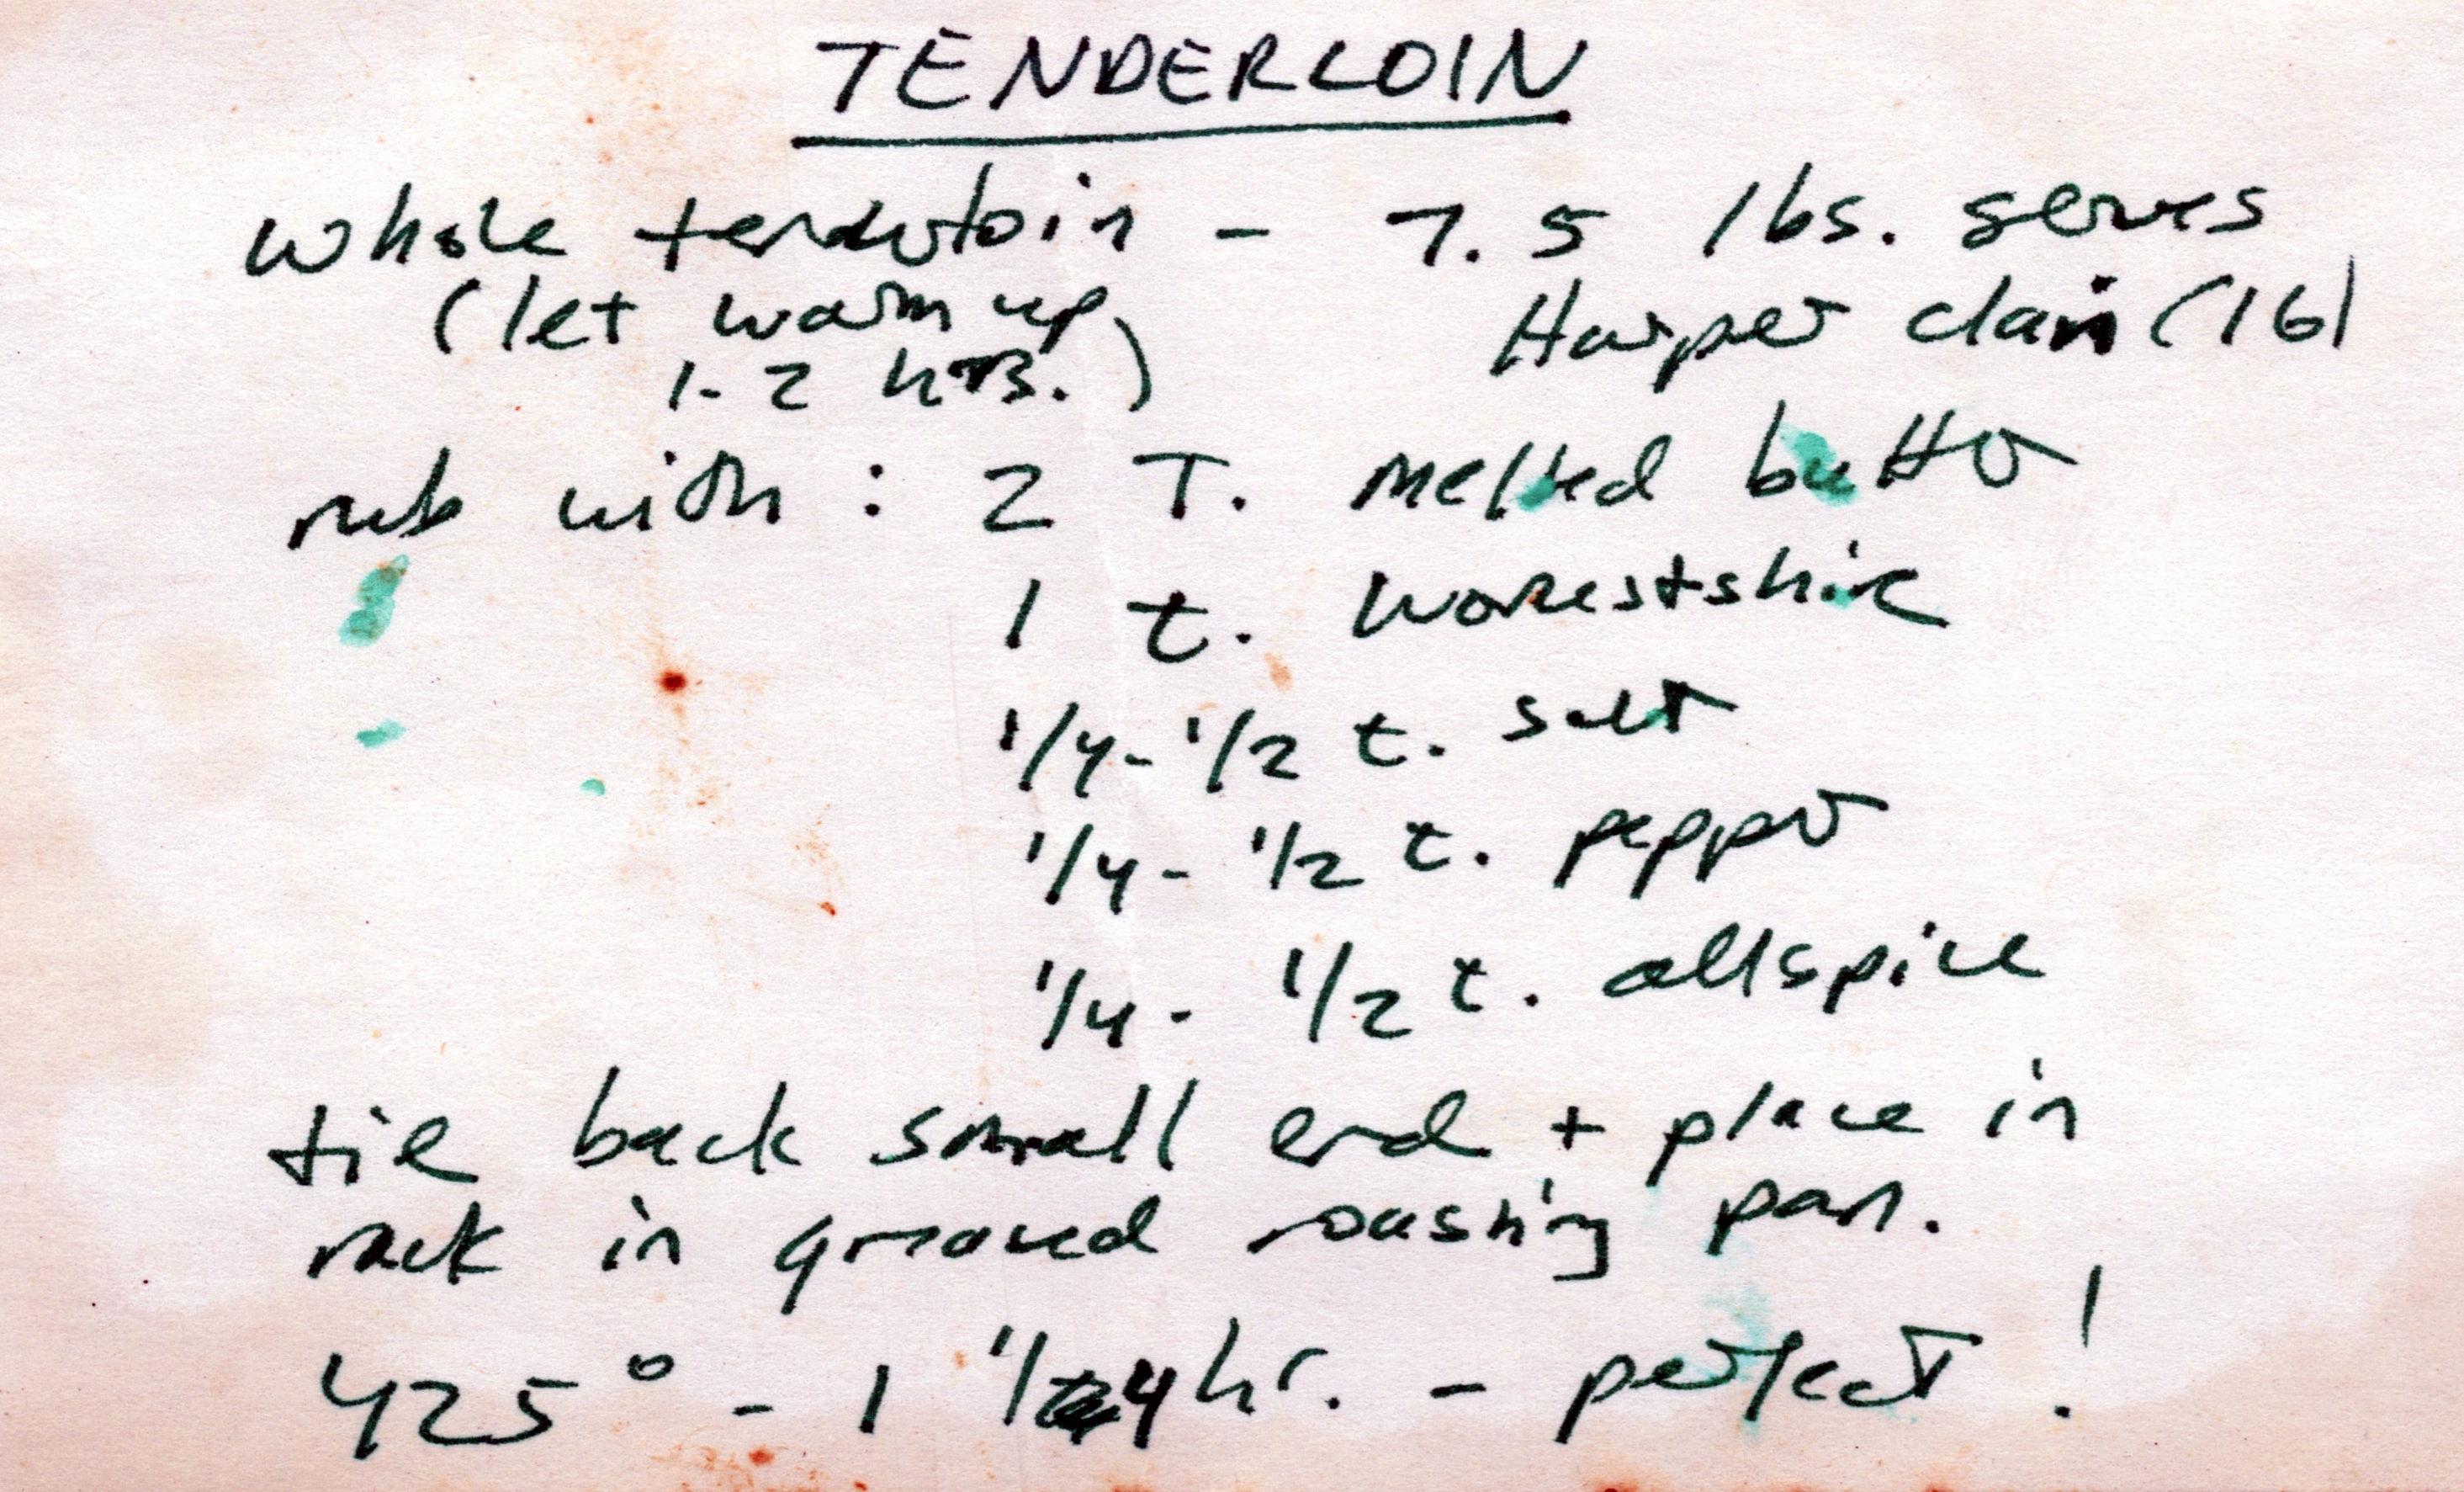 TENDERLOIN
whole tenderloin - 7.5 lbs. serves
(let warm up Harper clan (16)
1-2 hrs.)
rub with : 2 T. melted butter
1 t. Worestshire
1/4-1/2 t. salt
1/4- 1/2 t. pepper
1/4- 1/2 t. allspice
tie back small end + place in
rack in greased roasting pan.
425° - 1 1/4 hr. - perfect!